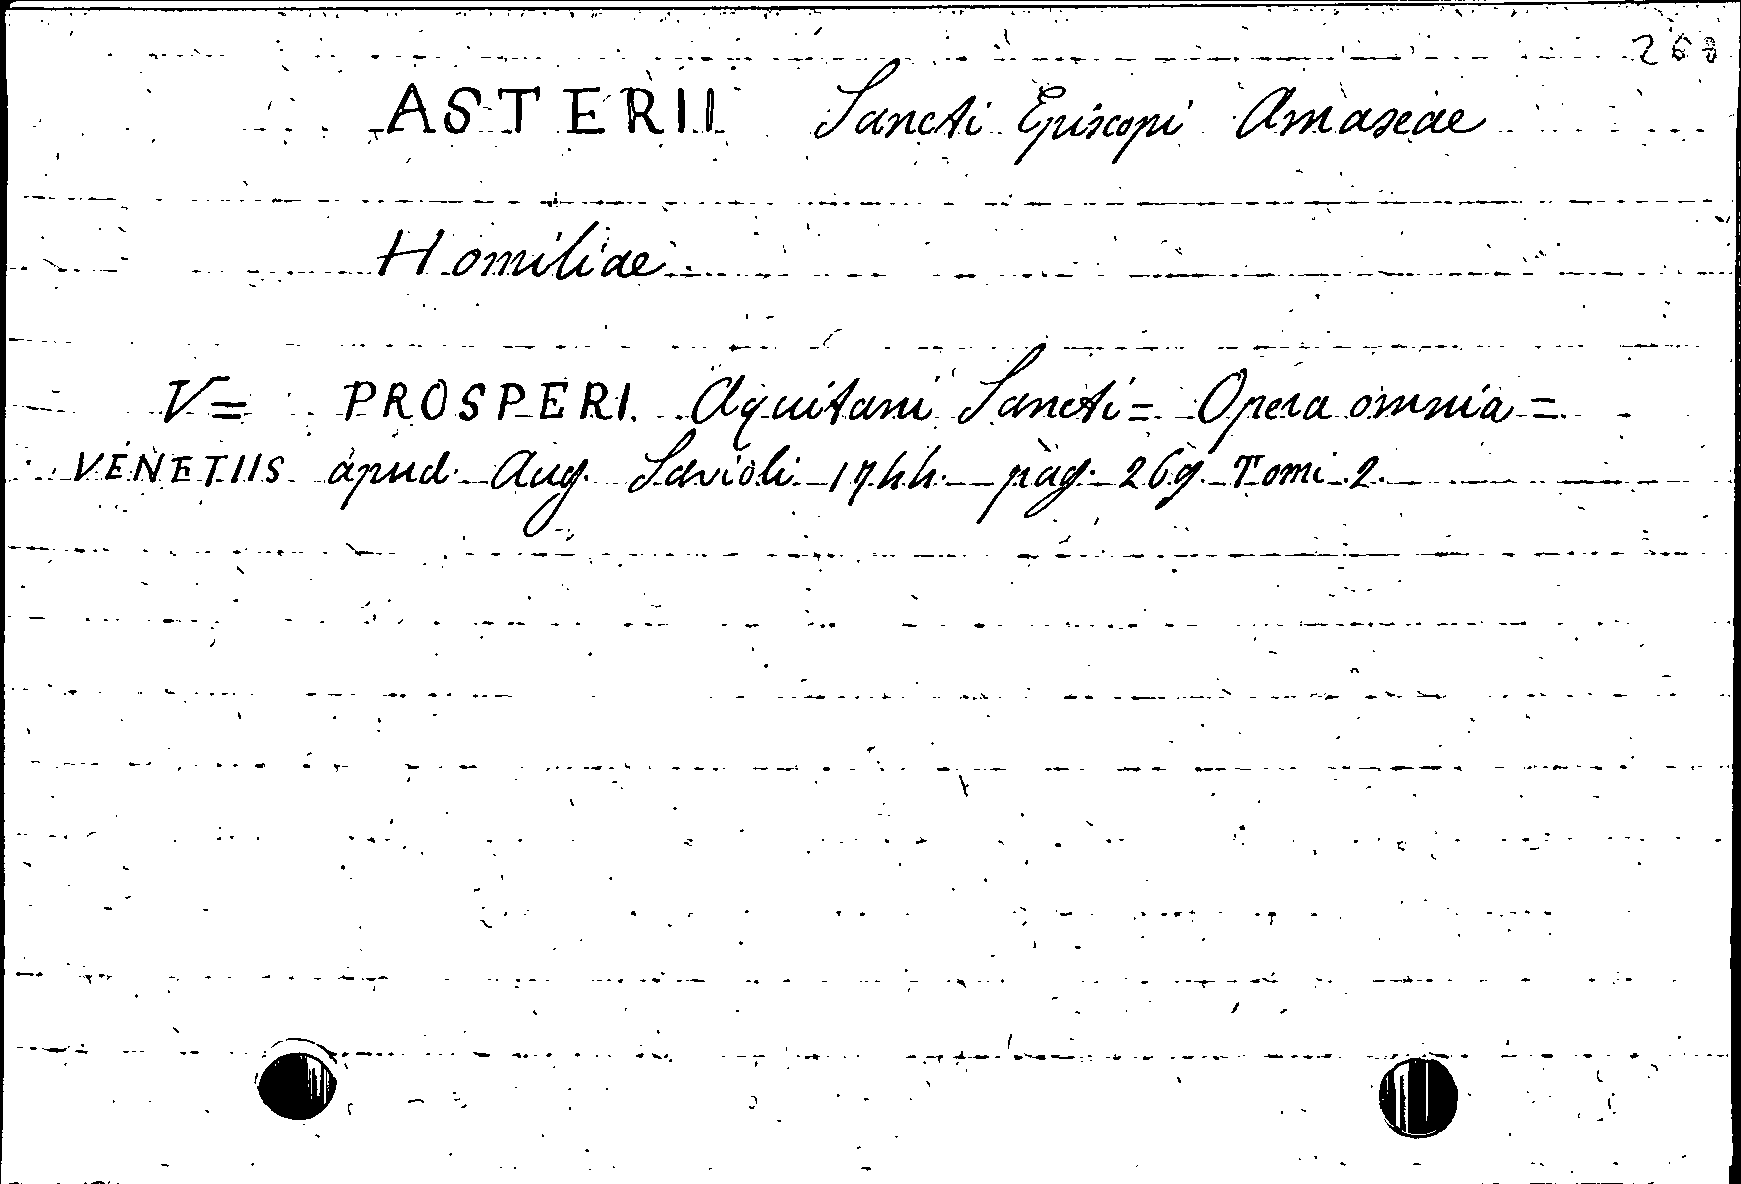 268
ASTERII Sancti Episcopi Amaseae
Homiliae.
V= PROSPERI Aquitani Sancti= Opera omnia =
VENETIIS apud Aug. Savioli 1744. pag. 269 Tomi 2.